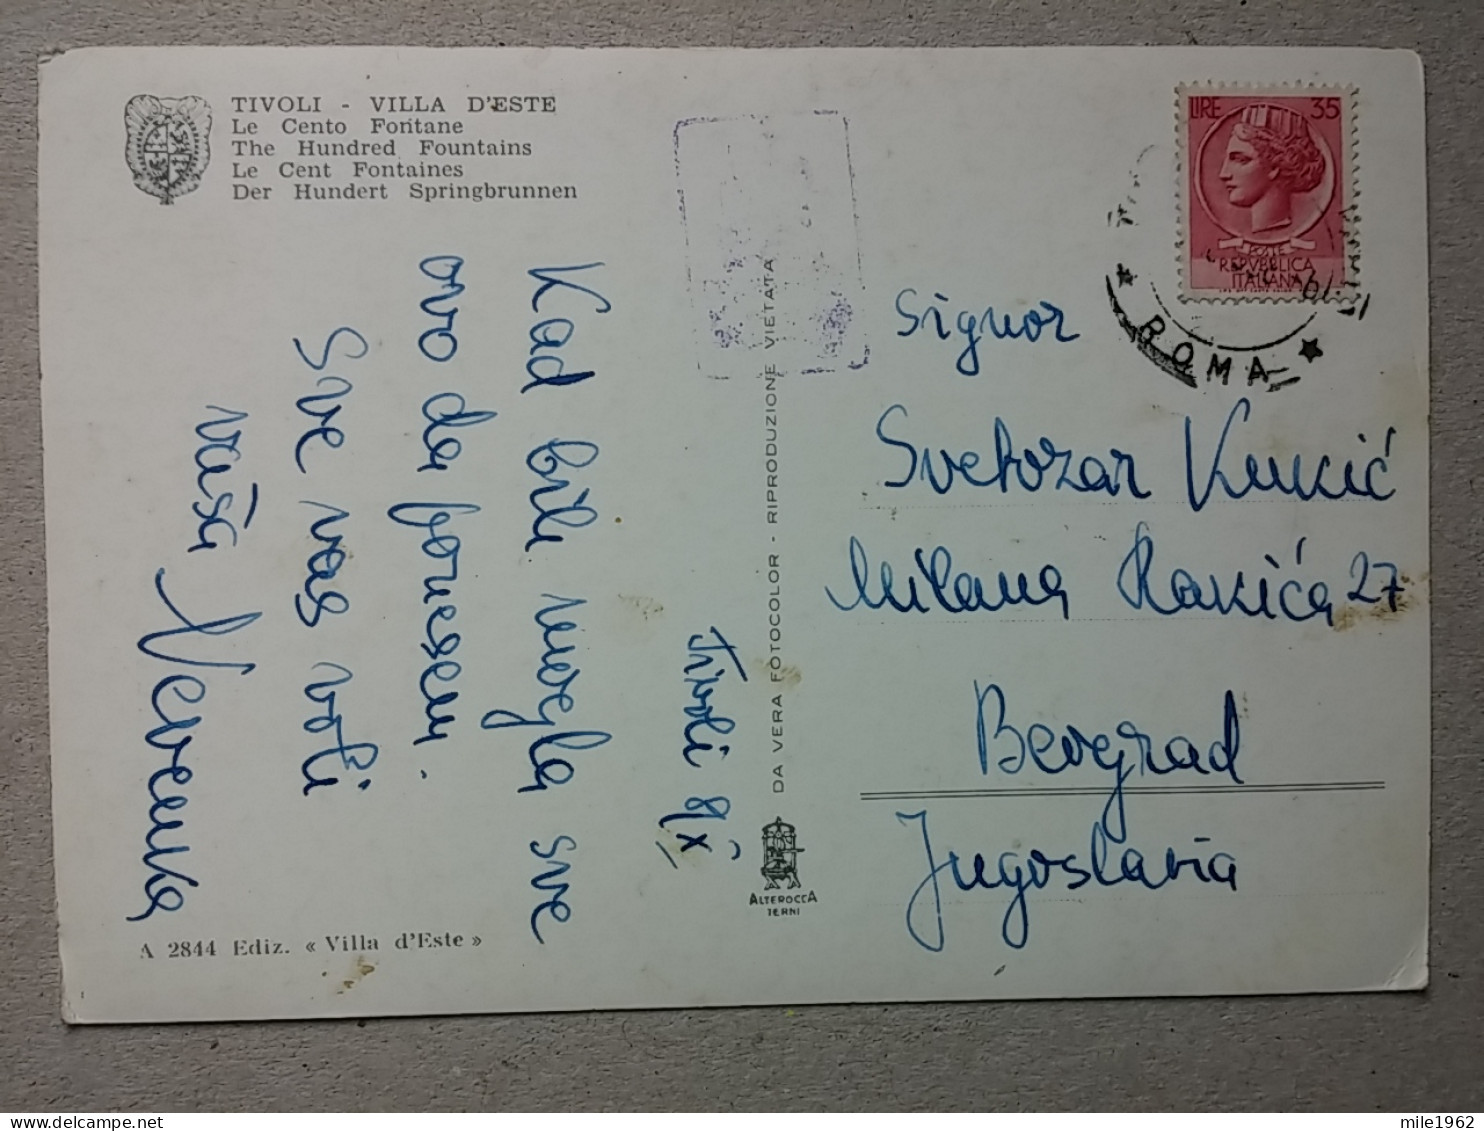 TIVOLI - VILLA D'ESTE
Le Cento Fontane
The Hundred Fountains
Le Cent Fontaines
Der Hundert Springbrunnen
Tivoli 9/X
Kad bih mogla sve
ovo da ponesem.
Sve vas voli
vaša Nevenka
A 2844 Ediz. « Villa d'Este »
DA VERA FOTOCOLOR - RIPRODUZIONE VIETATA
ALTEROCCA
TERNI
LIRE 35
REPVBBLICA
ITALIANA
ROMA
Signor
Svetozar Kukić
Milana Rakića 27
Beograd
Jugoslavia
mile1962